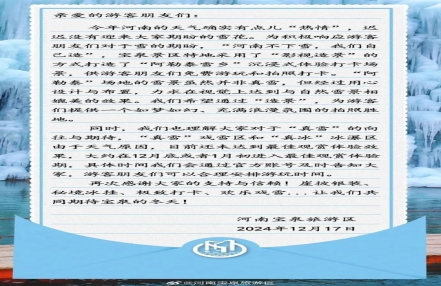 亲爱的游客朋友们：
今年河南的天气确实有点儿“热情”，迟
迟没有迎来大家期盼的雪花。为积极响应游客
朋友们对于雪的期盼，“河南不下雪，我们自
己造”，宝泉景区特地采用了“影视造景”的
方式打造了“阿勒泰雪乡”沉浸式体验打卡场
景，供游客朋友们免费游玩和拍照打卡。“阿
勒泰”场地的雪景虽然并非真雪，但经过用心
设计与布置，力求在视觉上达到与自然雪景相
媲美的效果。我们希望通过“造景”，为游客
们提供一个如梦如幻、充满浪漫氛围的拍照胜
地。
同时，我们也理解大家对于“真雪”的向
往与期待，“真雪”戏雪区和“真冰”冰瀑区
由于天气原因，目前还未达到最佳观赏体验效
果，大约在12月底或者1月初进入最佳观赏体验
期，具体时间我们会通过官方账号及时告知大
家，游客朋友们可以合理安排游玩时间。
再次感谢大家的支持与信赖！崖披银装、
秘境冰挂、极致打卡、欢乐戏雪...让我们共
同期待宝泉的冬天！
河南宝泉旅游区
2024年12月17日
@河南宝泉旅游区